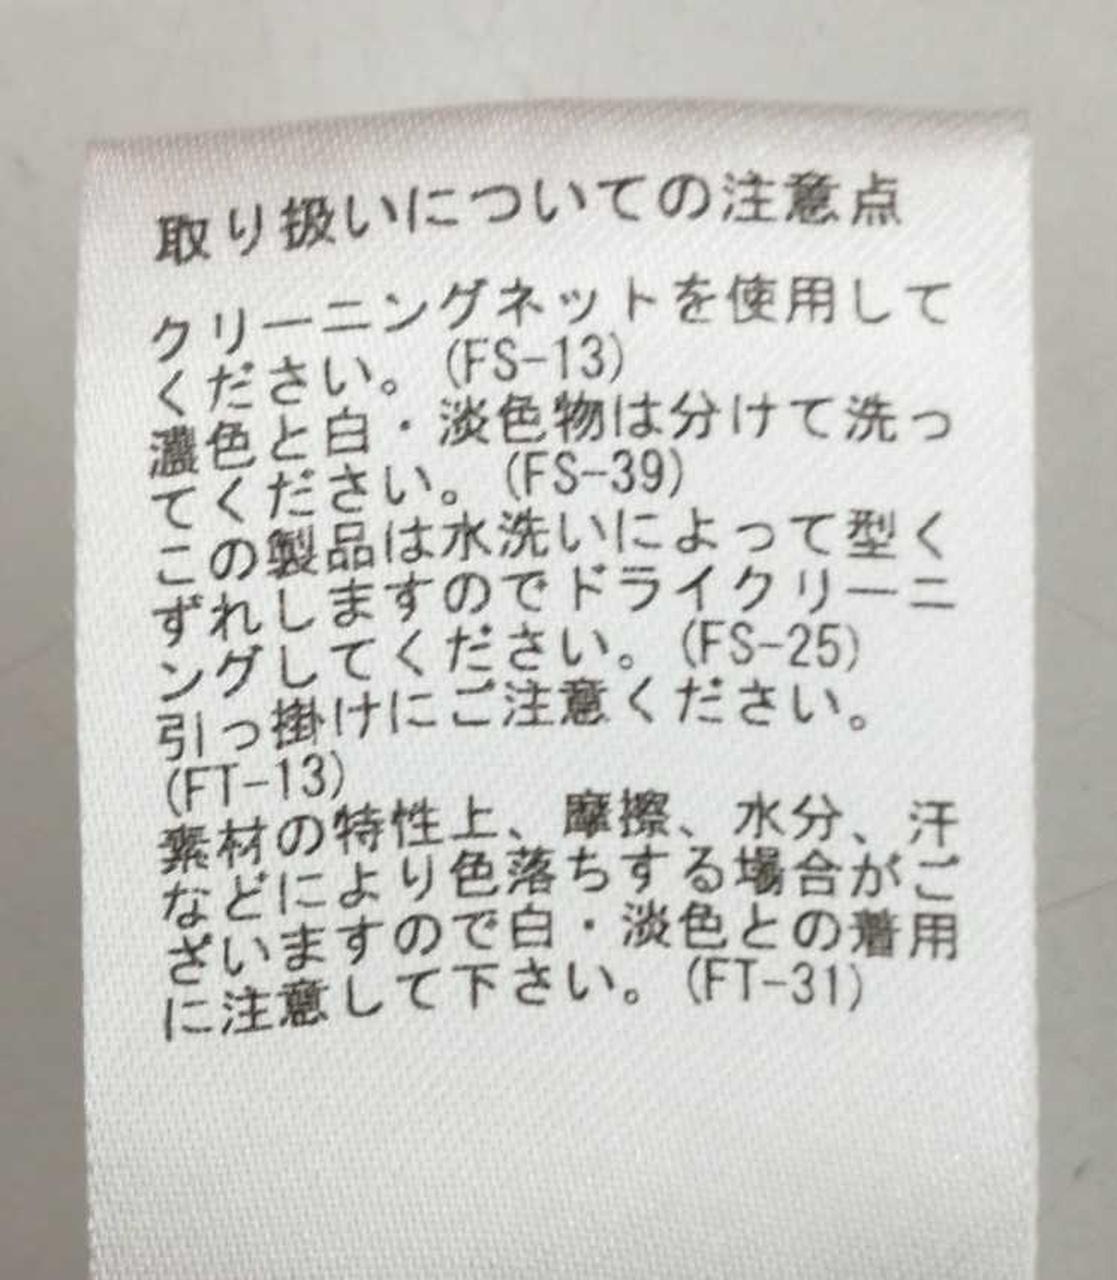 取り扱いについての注意点
クリーニングネットを使用して
ください。(FS-13)
濃色と白・淡色物は分けて洗っ
てください。(FS-39)
この製品は水洗いによって型く
ずれしますのでドライクリーニ
ングしてください。(FS-25)
引っ掛けにご注意ください。
(FT-13)
素材の特性上、摩擦、水分、汗
などにより色落ちする場合がご
ざいますので白・淡色との着用
に注意して下さい。(FT-31)